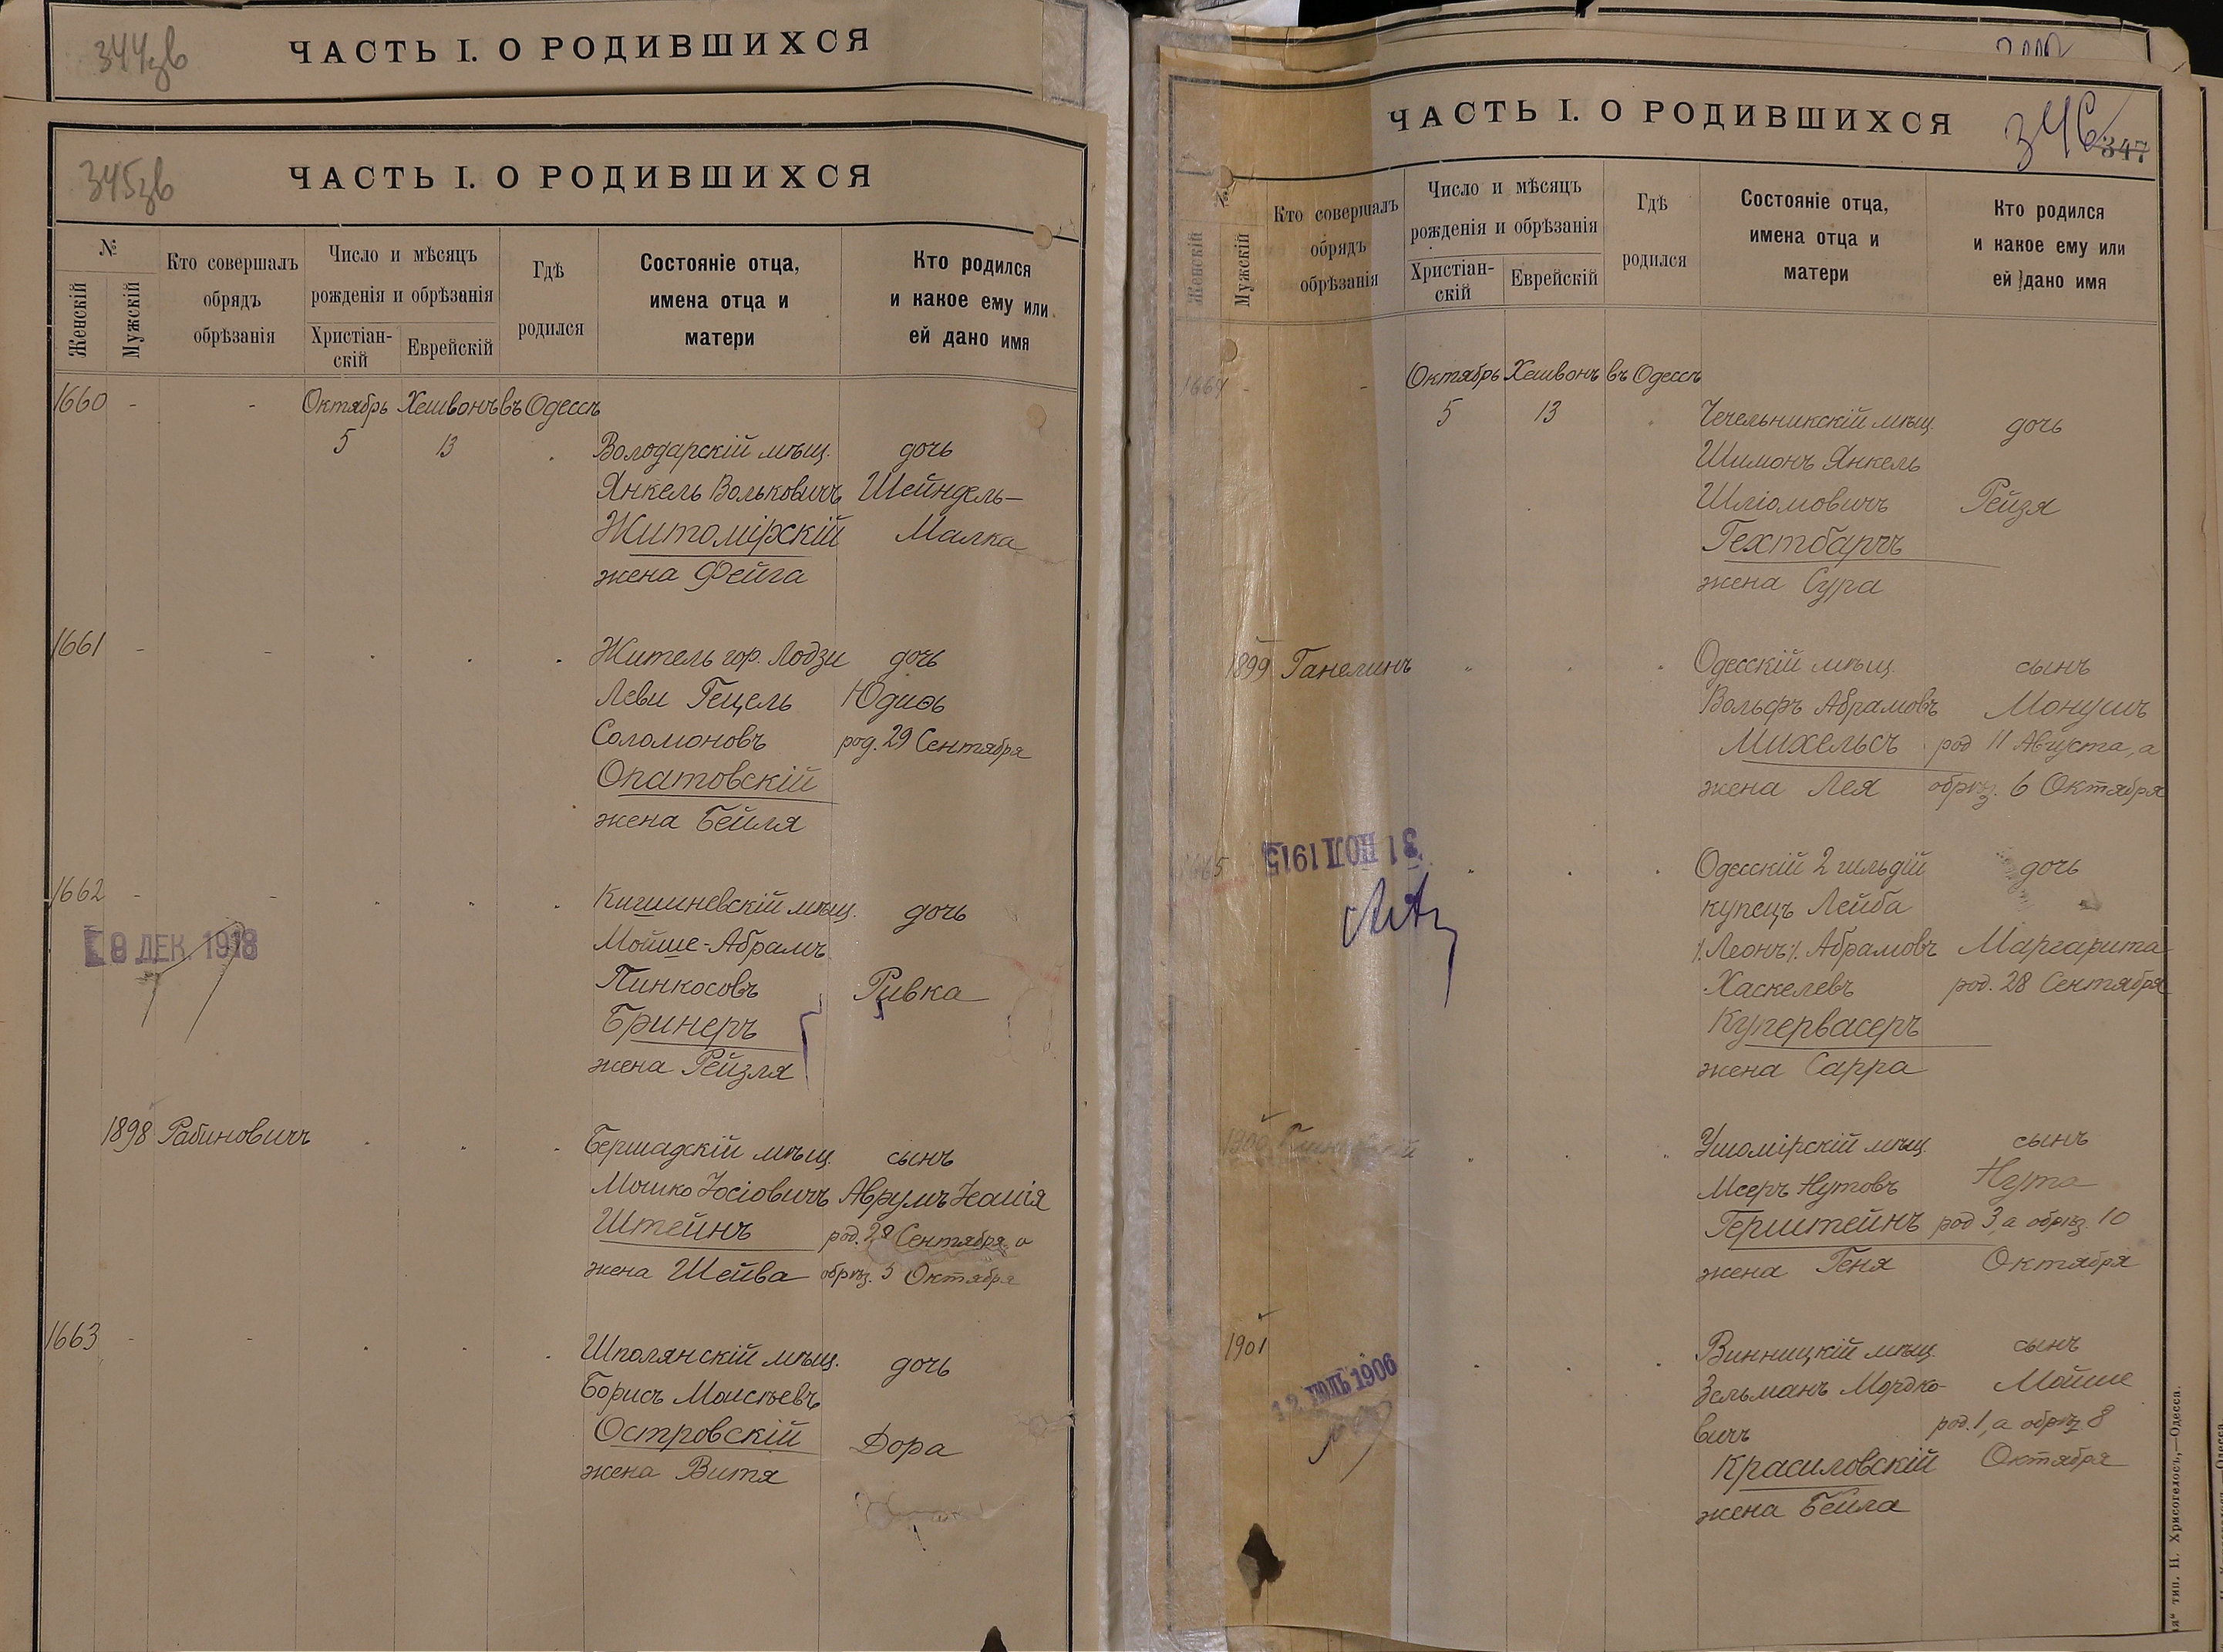 344зв
ЧАСТЬ I. О РОДИВШИХСЯ
345зв
ЧАСТЬ I. О РОДИВШИХСЯ
№
Женскій
Мужскій
Кто совершалъ
обрядъ
обрѣзанія
Число и мѣсяцъ
рожденія и обрѣзанія
Христіан-
скій
Еврейскій
Гдѣ
родился
Состояніе отца,
имена отца и
матери
Кто родился
и какое ему или
ей дано имя
1660 - - Октябрь Хешвонъ въ Одессѣ
5 13 Володарскій мѣщ. дочь
Янкель Вольковичъ Шейндель-
Житомірскій Малка
жена Фейга
1661 - - Житель гор. Лодзи дочь
Леви Гецель Юдиѳь
Соломоновъ род. 29 Сентября
Опатовскій
жена Бейля
1662 - - Кишиневскій мѣщ. дочь
9 ДЕК. 1918
Мойше-Абрамъ
Пинкосовъ Ривка
Бринеръ
жена Рейзля
1898 Рабиновичъ Бершадскій мѣщ. сынъ
Мошко Іосіовичъ Аврумъ Іешія
Штейнъ род. 28 Сентября, а
жена Шейва обрѣз. 5 Октября
1663 - - Шполянскій мѣщ. дочь
Борисъ Моисѣевъ
Островскій Дора
жена Витя
ЧАСТЬ I. О РОДИВШИХСЯ
346
347
№
Женскій
Мужскій
Кто совершалъ
обрядъ
обрѣзанія
Число и мѣсяцъ
рожденія и обрѣзанія
Христіан-
скій
Еврейскій
Гдѣ
родился
Состояніе отца,
имена отца и
матери
Кто родился
и какое ему или
ей дано имя
1664 - - Октябрь Хешвонъ въ Одессѣ
5 13 Чечельникскій мѣщ. дочь
Шимонъ Янкель
Шліомовичъ Рейзя
Гехтбарчъ
жена Сура
1899 Ганелинъ Одесскій мѣщ. сынъ
Вольфъ Абрамовъ Монушъ
Михельсъ род 11 Августа, а
жена Лея обрѣз. 6 Октября
1665 31 ІЮЛ 1915 Одесскій 2 гильдій дочь
купецъ Лейба
/.Леонъ/. Абрамовъ Маргарита
Хаскелевъ род. 28 Сентября
Купервасеръ
жена Сарра
1900 Ушомірскій мѣщ. сынъ
Мееръ Нутовъ Нута
Герштейнъ род 3, а обрѣз. 10
жена Геня Октября
1901 Винницкій мѣщ. сынъ
12 ІЮЛЬ 1906
Зельманъ Мордко- Мойше
вичъ род. 1, а обрѣз 8
Красиловскій Октября
жена Бейла
тип. Н. Хрисогелосъ,—Одесса.